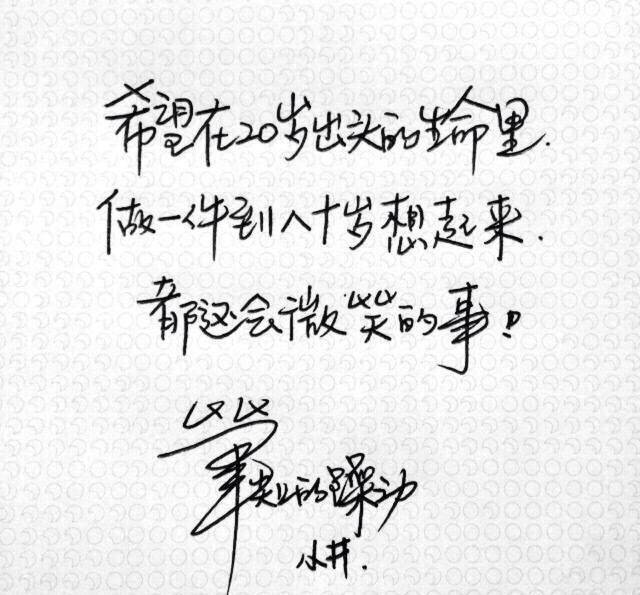 希望在20岁出头的生命里.
做一件到八十岁想起来.
都还会微笑的事!!
笔尖上的躁动
小井.